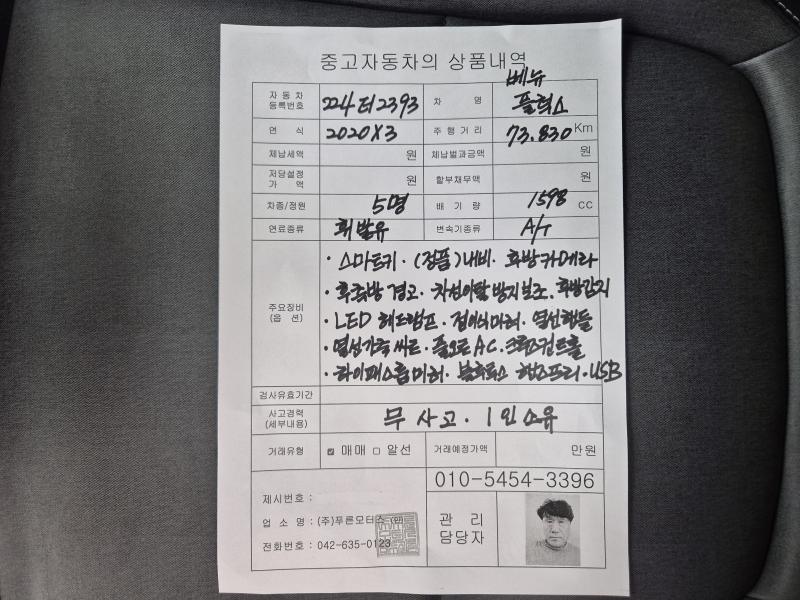 중고자동차의 상품내역
자 동 차 등록번호 224더2393 차 명 베뉴 플럭스
연 식 2020X3 주 행 거 리 73.830 Km
체납세액 원 체납벌과금액 원
저당설정 가 액 원 할부채무액 원
차종/정원 5명 배 기 량 1598 CC
연료종류 휘발유 변속기종류 A/T
주요장비 (옵 션)
· 스마트키 · (정품)내비 · 후방카메라
· 후측방 경고 · 차선이탈 방지보조 · 후방감지
· LED 헤드램프 · 접이식미러 · 열선핸들
· 열선가죽 씨트 · 풀오토AC · 크루즈컨트롤
· 하이패스룸미러 · 블루투스 핸즈프리 · USB
검사유효기간
사고경력 (세부내용) 무 사고 · 1인소유
거래유형 ☑ 매매 □ 알선 거래예정가액 만원
010-5454-3396
제시번호 :
업 소 명 : (주)푸른모터스 (인)
전화번호 : 042-635-0123
관 리
담당자